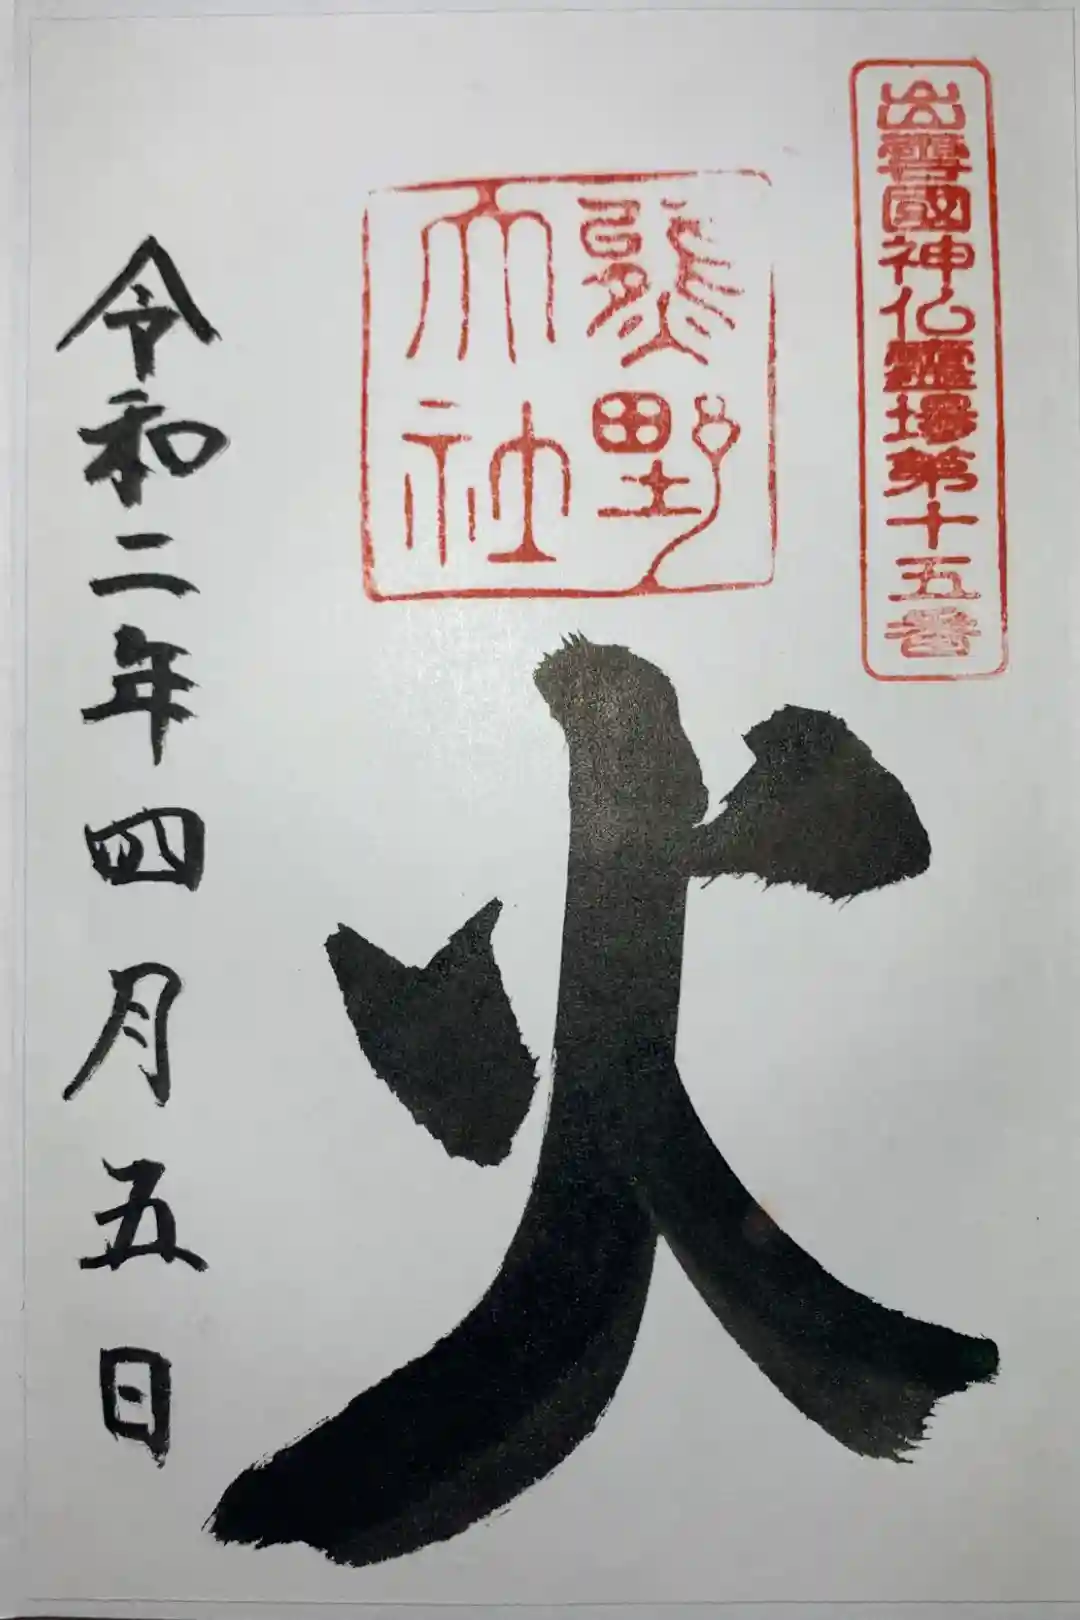 出雲國神仏霊場第十五番
熊野
大社
火
令和二年四月五日